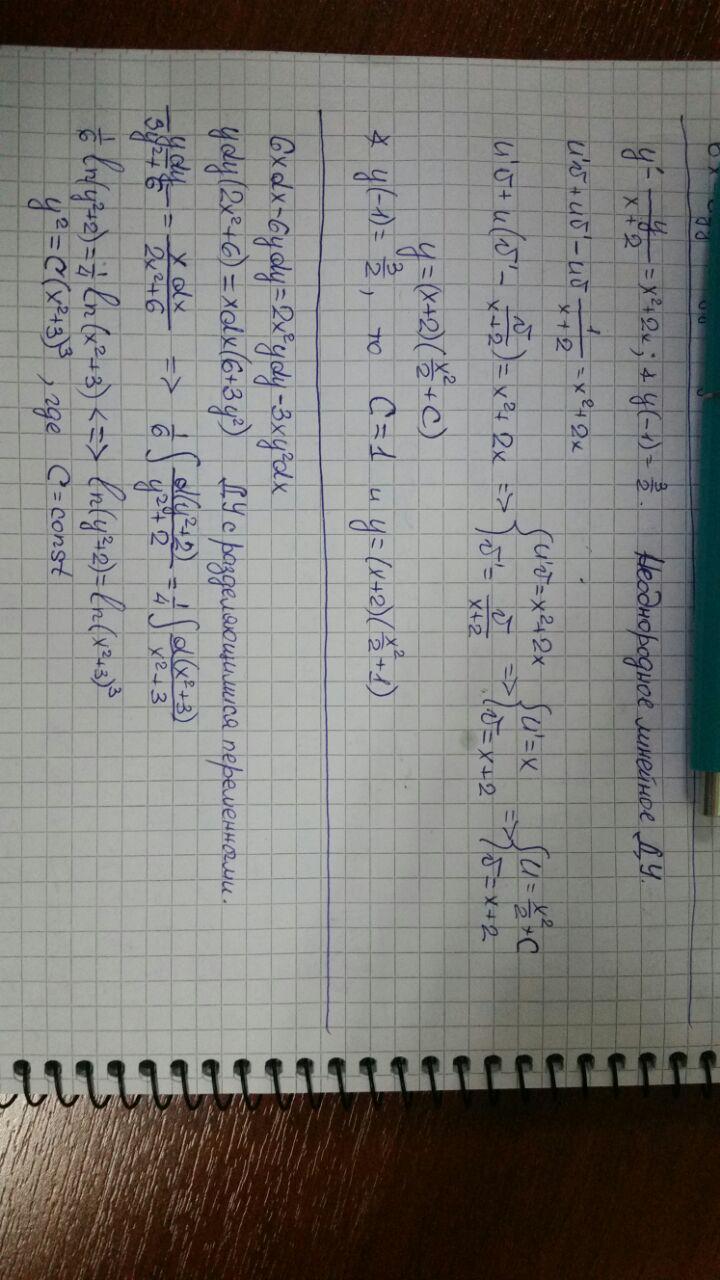 y' - y/(x+2) = x²+2x; ∢ y(-1) = 3/2. Неоднородное линейное ДУ.
u'v + uv' - uv 1/(x+2) = x²+2x
u'v + u(v' - v/(x+2)) = x²+2x => { u'v = x²+2x ; v' = v/(x+2) => { u' = x ; v = x+2 => { u = x²/2 + C ; v = x+2
y = (x+2)(x²/2 + C)
∢ y(-1) = 3/2, то C = 1 и y = (x+2)(x²/2 + 1)
6xdx - 6ydy = 2x²ydy - 3xy²dx
ydy(2x²+6) = xdx(6+3y²) ДУ с разделяющимися переменными.
ydy/(3y²+6) = xdx/(2x²+6) => 1/6 ∫ d(y²+2)/(y²+2) = 1/4 ∫ d(x²+3)/(x²+3)
1/6 ln(y²+2) = 1/4 ln(x²+3) <=> ln(y²+2) = ln(x²+3)³
y² = C(x²+3)³, где C = const